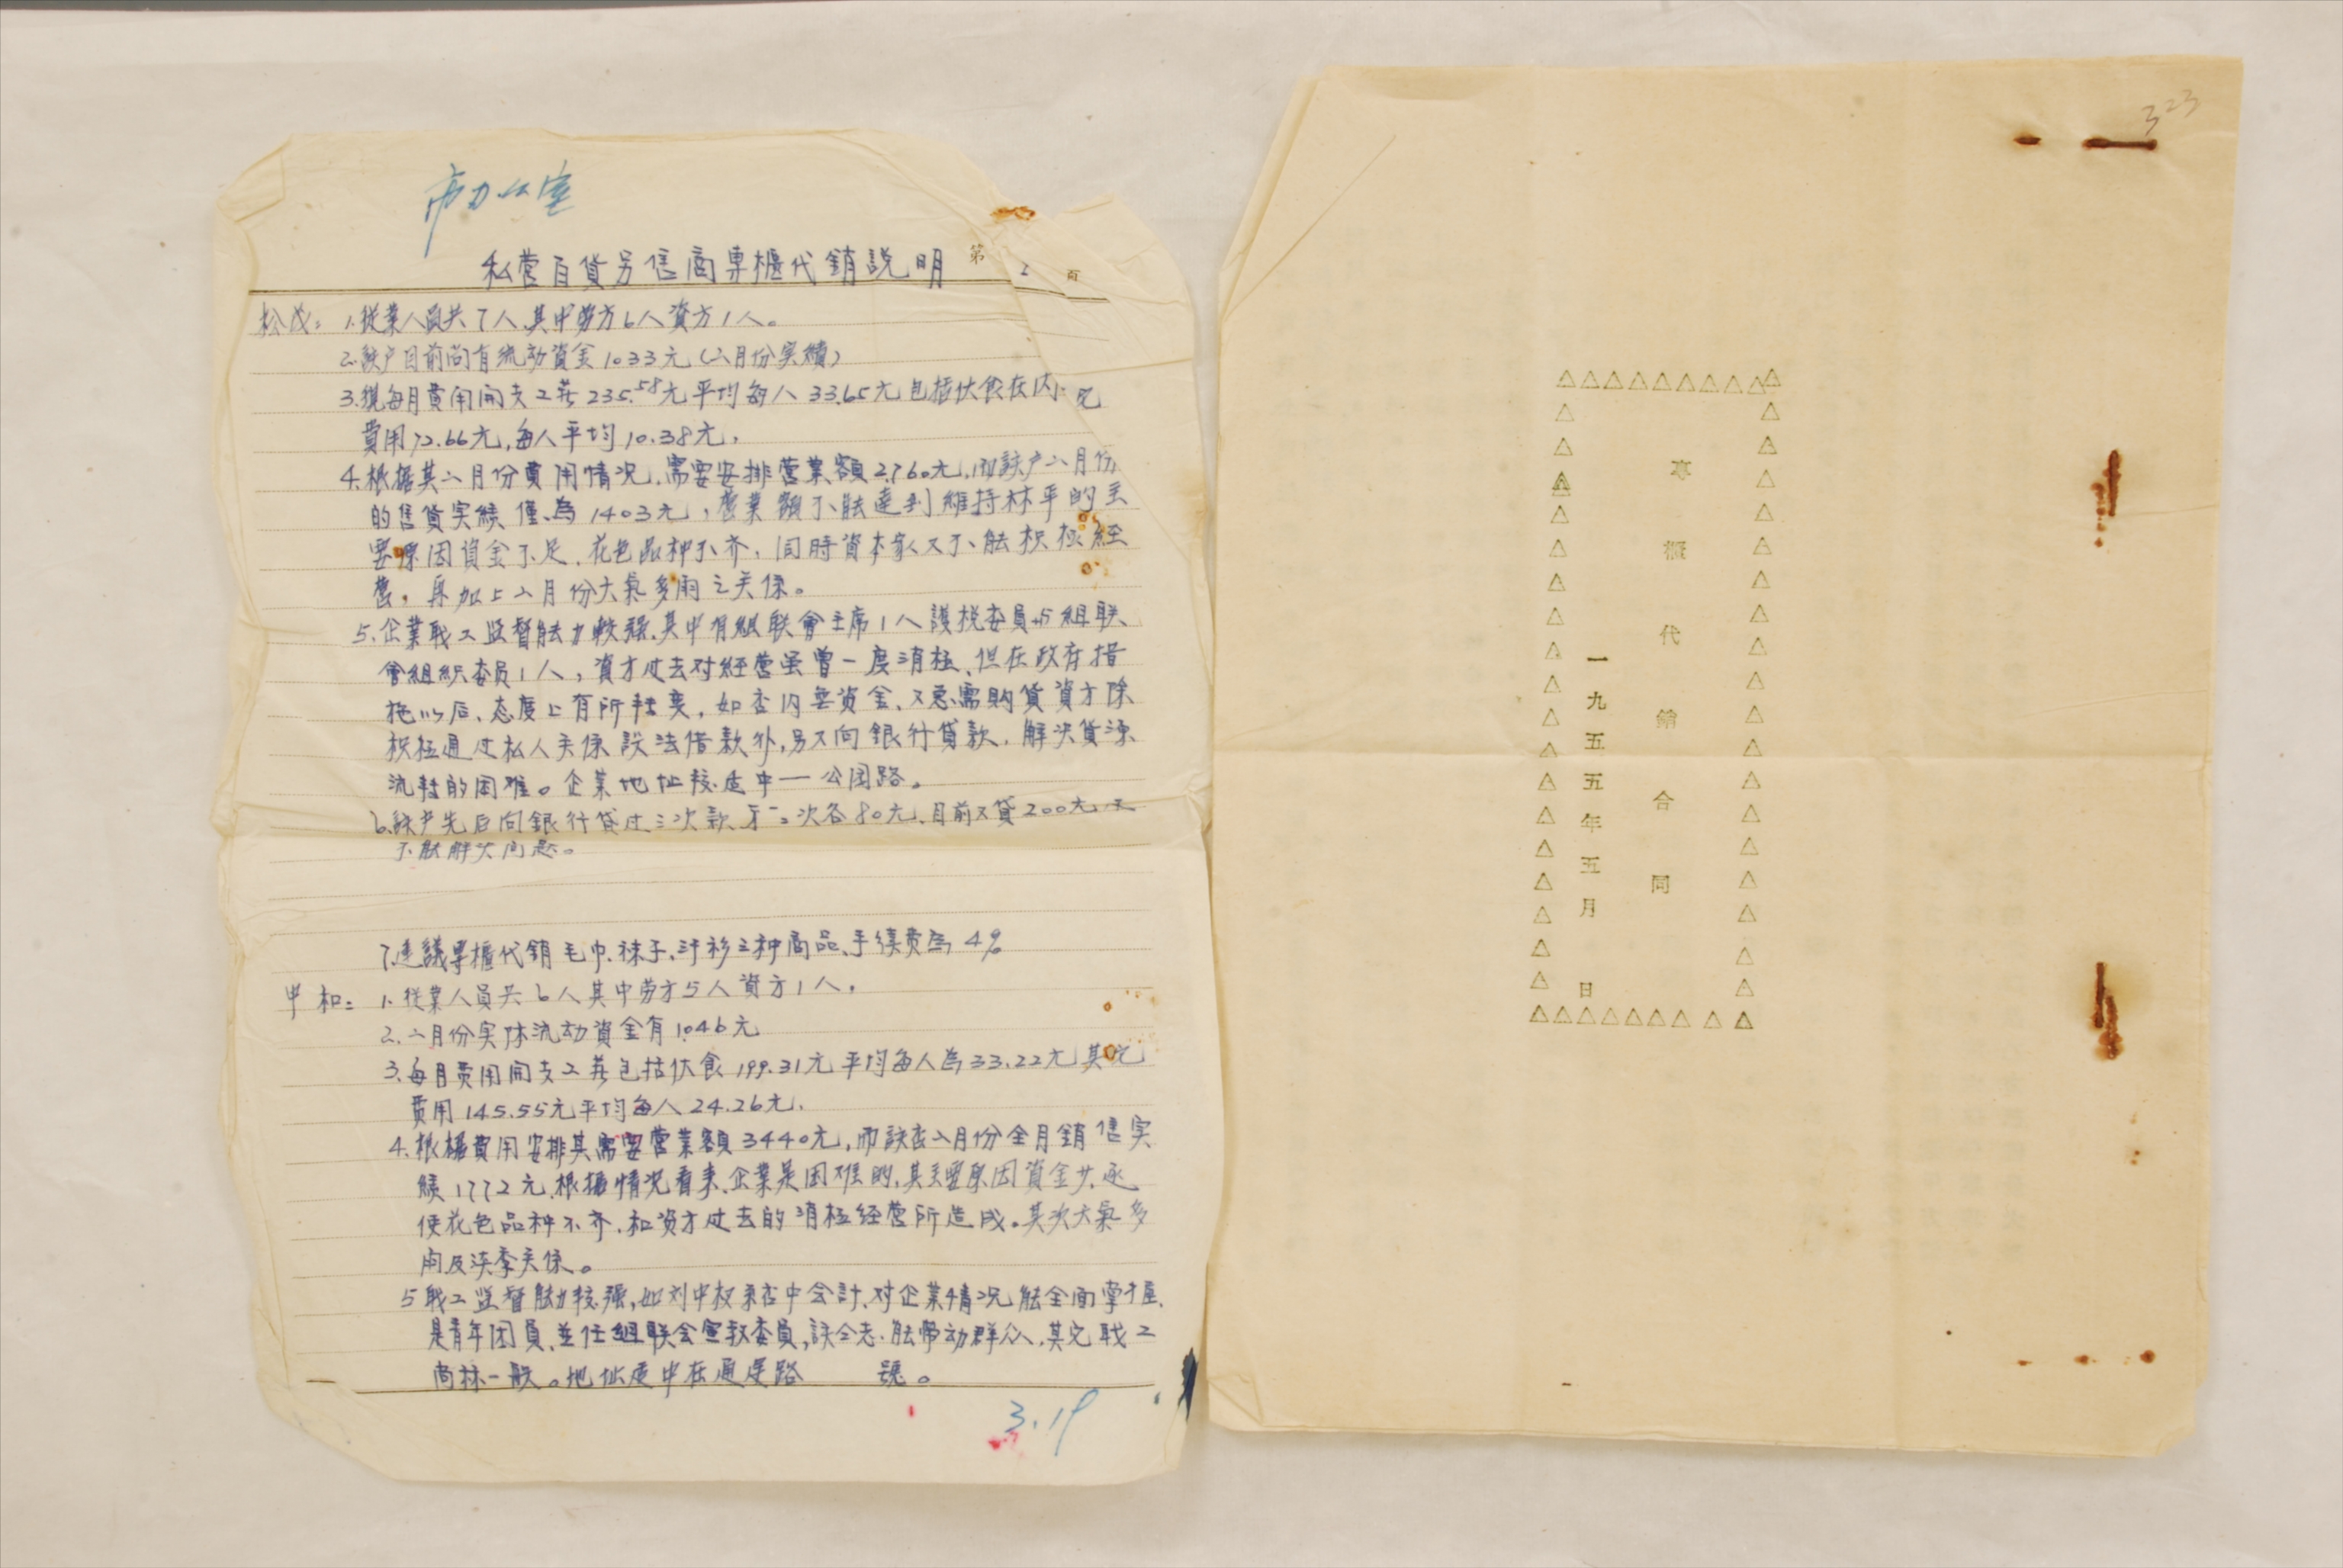 市办公室
私营百貨另售商専櫃代銷説明
第 2 頁
松茂：1.從業人員共7人,其中劳方6人資方1人。
2.該户目前尚有流动資金1033元（二月份实績）
3.現每月費用開支工薪235.58元平均每人33.65元包括伙食在内.它
費用72.66元,每人平均10.38元,
4.根据其二月份費用情况,需要安排营業額2760元,而該户二月份
的售貨实績僅為1403元,营業額不能達到維持水平的主
要原因資金不足,花色品种不齐,同時資本家又不能积极經
营,再加上二月份天氣多雨之关係。
5.企業职工监督能力較强,其中有組联會主席1人護税委員
會組织委員1人,資方过去对經营虽曾一度消极,但在政府措
施以后,态度上有所轉変,如店内無資金,又急需購貨資方除
积极通过私人关係設法借款外,另又向銀行貸款,解决貨源
流轉的困难。企業地址較适中一公园路。
6.該户先后向銀行貸过三次款,第一二次各80元,目前又貸200元
不能解决问題。
7.建議專櫃代銷毛巾.袜子.汗衫三种商品,手續費為4%
中和：1.從業人員共6人其中劳方5人資方1人,
2.二月份实际流动資金有1046元
3.每月费用開支工薪包括伙食199.31元平均每人為33.22元其它
费用145.55元平均每人24.26元,
4.根据費用安排其需要营業額3440元,而該店二月份全月銷售实
績1772元,根据情况看来,企業是困难的,其主要原因資金少,致
使花色品种不齐,和资方过去的消极经营所造成。其次天氣多
雨及淡季关係。
5职工监督能力较强,如刘中权系店中会計,对企業情况能全面掌握,
是青年团員,並任組联会宣教委員,該仝志能带动群众,其它职工
水平一般。地址适中在通运路　　號。
3.19
323
專櫃代銷合同
一九五五年五月　日